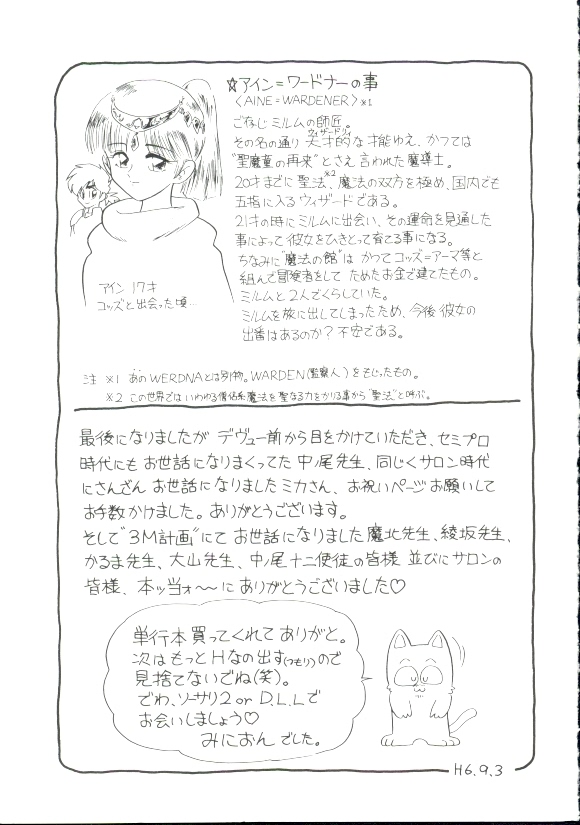 ☆アイン=ワードナーの事
〈AINE=WARDENER〉※1
ごなじミルムの師匠。
その名の通り天才的な才能ゆえ、かつては
ウィザードリィ
"聖魔童の再来"とさえ言われた魔導士。
20才までに聖法※2、魔法の双方を極め、国内でも
五指に入るウィザードである。
21才の時にミルムに出会い、その運命を見通した
事によって彼女をひきとって育てる事になる。
ちなみに"魔法の館"は かつてコッズ=アーマ等と
組んで冒険者をして ためたお金で建てたもの。
ミルムと2人でくらしていた。
ミルムを旅に出してしまったため、今後 彼女の
出番はあるのか?不安である。
アイン 17才
コッズと出会った頃…
注 ※1 あのWERDNAとは別物。WARDEN(監察人)をもじったもの。
※2 この世界では いわゆる僧侶系魔法を聖なる力をかりる事から"聖法"と呼ぶ。
最後になりましたが デヴュー前から目をかけていただき、セミプロ
時代にも お世話になりまくってた 中ノ尾先生、同じくサロン時代
にさんざん お世話になりましたミカさん、お祝いページお願いして
お手数かけました。ありがとうございます。
そして"3M計画"にて お世話になりました 魔北先生、綾坂先生、
かるま先生、大山先生、中ノ尾十二使徒の皆様 並びにサロンの
皆様、本ッ当ォ〜〜に ありがとうございました♡
単行本買ってくれて ありがと。
次はもっとHなの出す(つもり)ので
見捨てないでね(笑)。
でわ、ソーサリ2 or D.L.Lで
お会いしましょう♡
みにおん でした。
H6.9.3